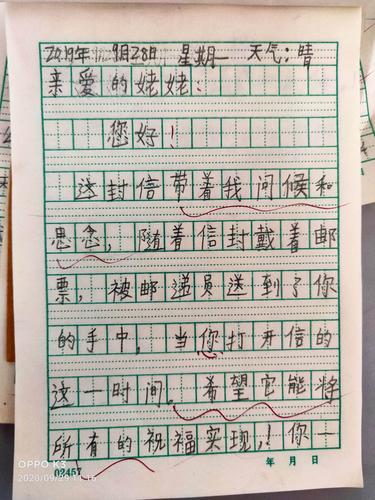 2019年 9月28日 星期一 天气：晴
亲爱的姥姥：
您好！
送封信带着我问候和
思念，随着信封戴着邮
票，被邮递员送到了你
的手中，当你打开信的
这一时间。希望它能将
所有的祝福实现，！你一
02457 年 月 日
OPPO K3
2020/09/29 11:16